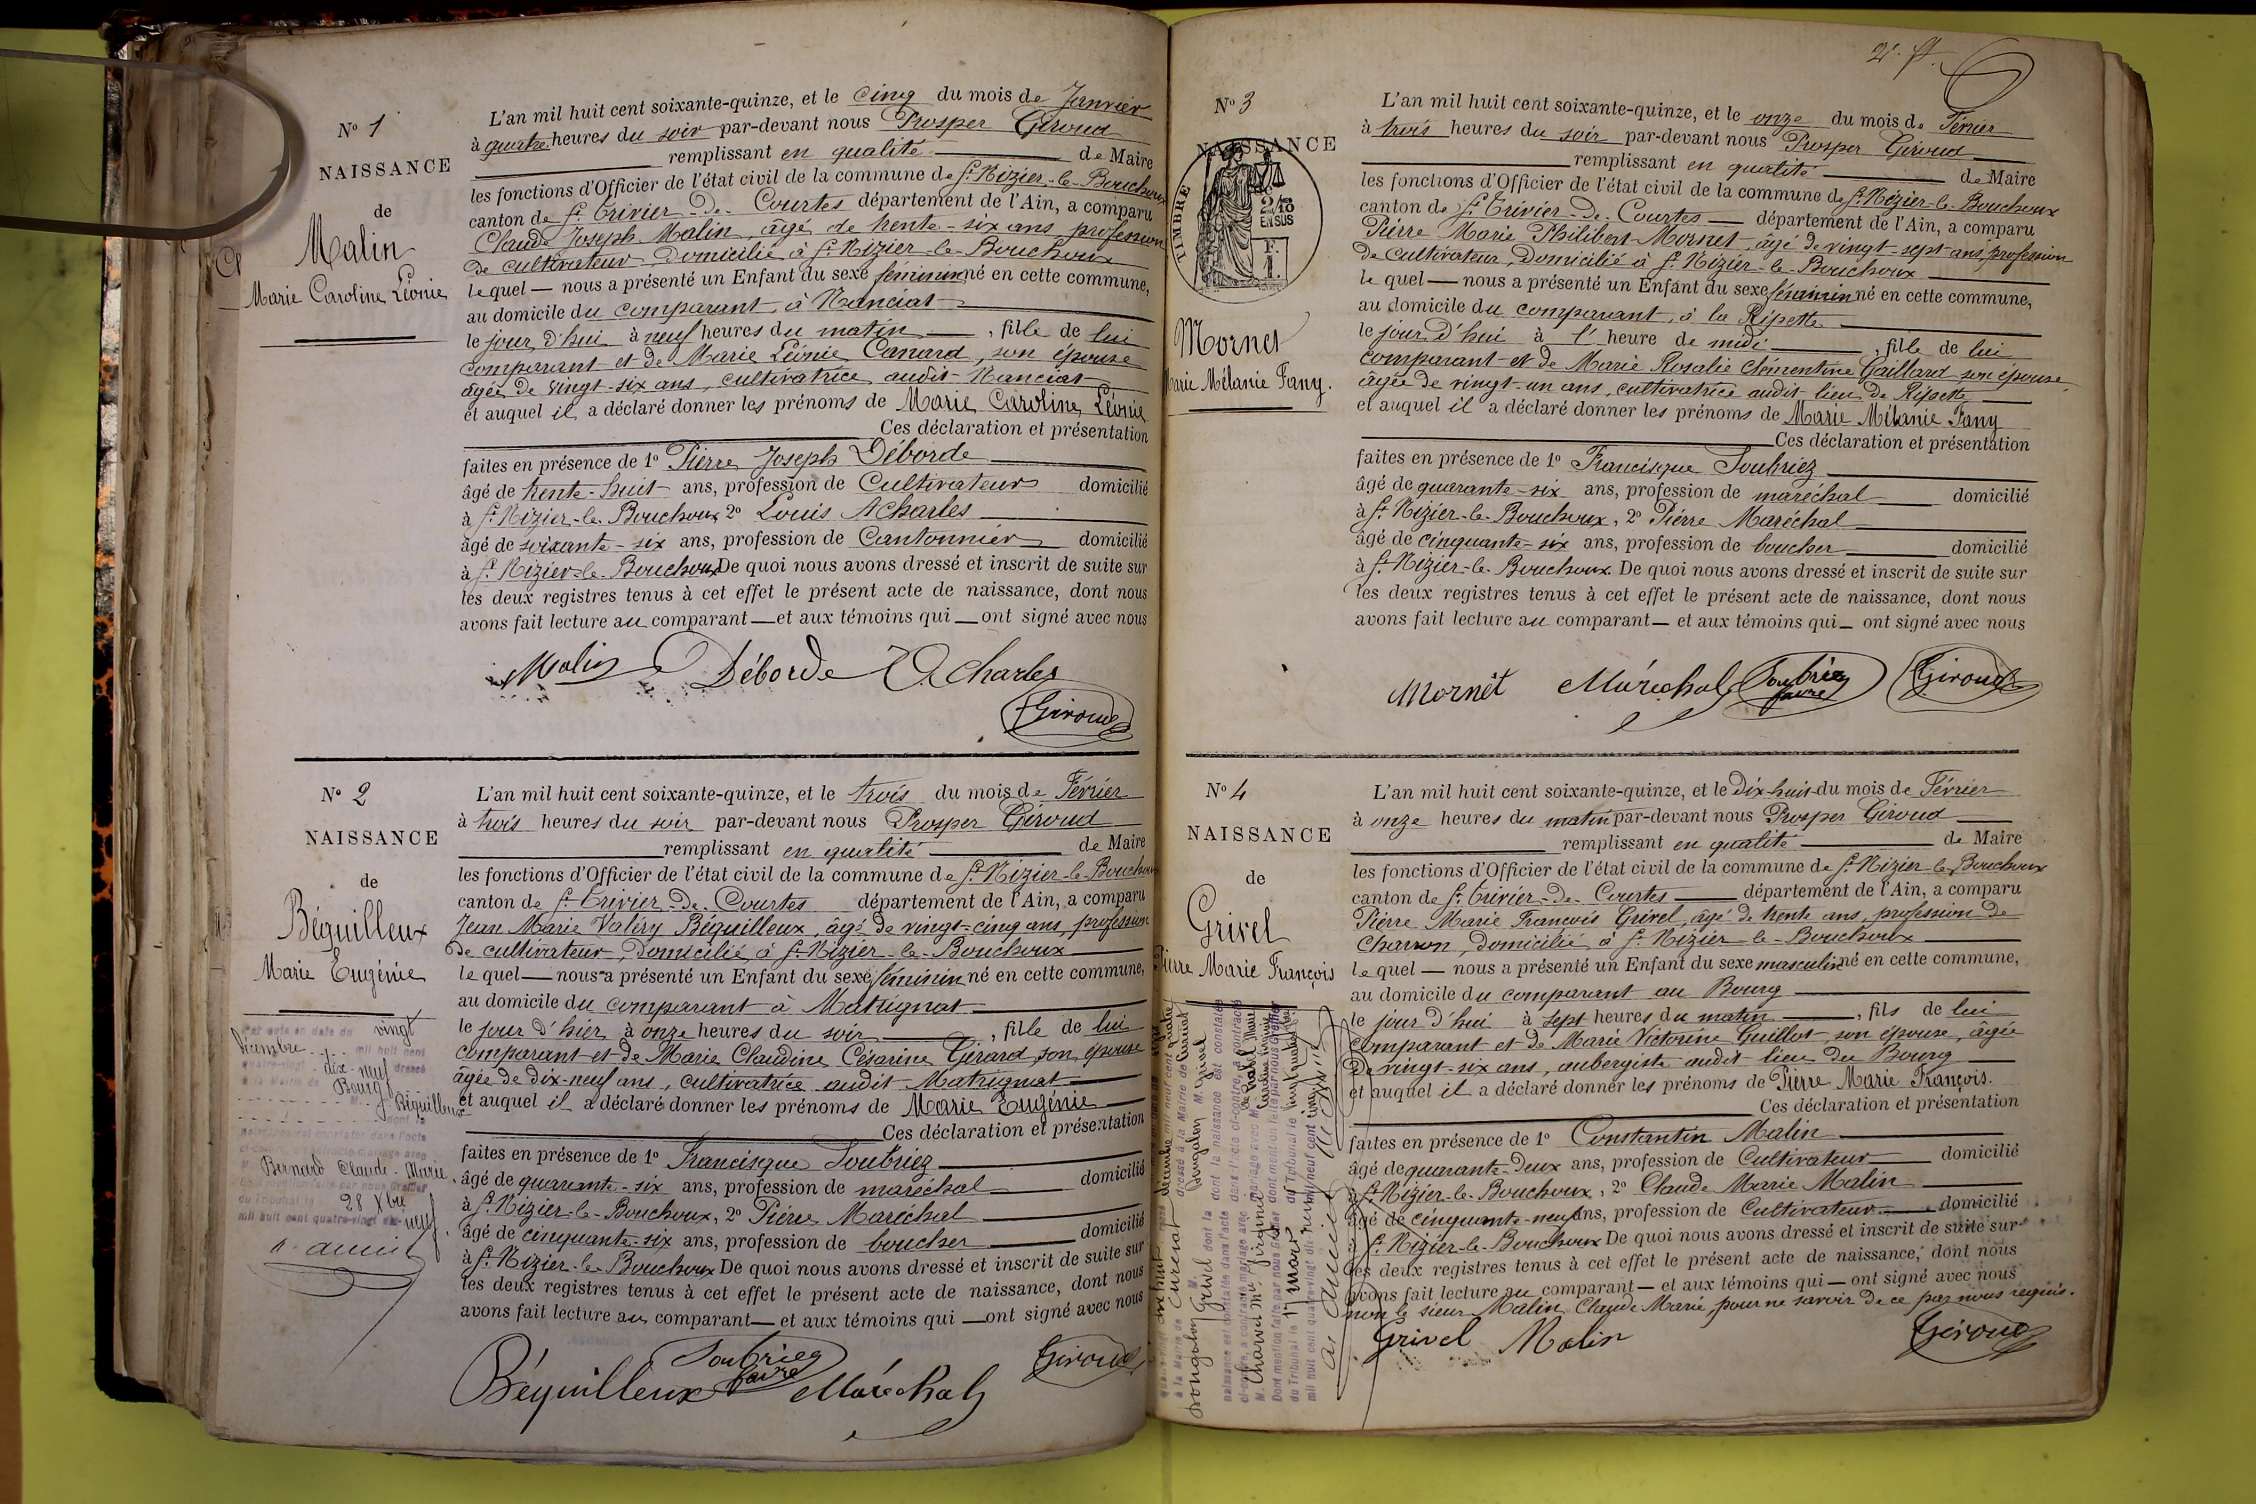 Nº 1
NAISSANCE
de
Malin
Marie Caroline Léonie
L'an mil huit cent soixante-quinze, et le cinq du mois de Janvier
à quatre heures du soir par-devant nous Prosper Giroud
remplissant en qualité de Maire
les fonctions d'Officier de l'état civil de la commune de St Nizier-le-Bouchoux
canton de St Trivier-de-Courtes département de l'Ain, a comparu
Claude Joseph Malin, âgé de trente-six ans profession
de cultivateur domicilié à St Nizier-le-Bouchoux
lequel nous a présenté un Enfant du sexe féminin né en cette commune,
au domicile du comparant, à Nanciat
le jour d'hui à neuf heures du matin, fille de lui
comparant et de Marie Léonie Canard, son épouse
âgée de vingt-six ans, cultivatrice audit Nanciat
et auquel il a déclaré donner les prénoms de Marie Caroline Léonie
Ces déclaration et présentation
faites en présence de 1º Pierre Joseph Déborde
âgé de trente-huit ans, profession de Cultivateur domicilié
à St Nizier-le-Bouchoux 2º Louis Acharles
âgé de soixante-six ans, profession de Cantonnier domicilié
à St Nizier-le-Bouchoux De quoi nous avons dressé et inscrit de suite sur
les deux registres tenus à cet effet le présent acte de naissance, dont nous
avons fait lecture au comparant et aux témoins qui ont signé avec nous
Malin Déborde Acharles
Giroud
Nº 2
NAISSANCE
de
Béguilleux
Marie Eugénie
vingt
Décembre mil huit cent
dix-neuf dressé
Bourg
Béguilleux
Bernard Claude-Marie
28 Xbre
mil huit cent quatre-vingt dix-neuf
L'an mil huit cent soixante-quinze, et le trois du mois de Février
à trois heures du soir par-devant nous Prosper Giroud
remplissant en qualité de Maire
les fonctions d'Officier de l'état civil de la commune de St Nizier-le-Bouchoux
canton de St Trivier-de-Courtes département de l'Ain, a comparu
Jean Marie Valéry Béguilleux, âgé de vingt-cinq ans, profession
de cultivateur, domicilié à St Nizier-le-Bouchoux
lequel nous a présenté un Enfant du sexe féminin né en cette commune,
au domicile du comparant à Matrignat
le jour d'hier à onze heures du soir, fille de lui
comparant et de Marie Claudine Césarine Girard, son épouse
âgée de dix-neuf ans, cultivatrice audit Matrignat
et auquel il a déclaré donner les prénoms de Marie Eugénie
Ces déclaration et présentation
faites en présence de 1º Francisque Soubriez
âgé de quarante-six ans, profession de maréchal domicilié
à St Nizier-le-Bouchoux, 2º Pierre Maréchal
âgé de cinquante-six ans, profession de boucher domicilié
à St Nizier-le-Bouchoux De quoi nous avons dressé et inscrit de suite sur
les deux registres tenus à cet effet le présent acte de naissance, dont nous
avons fait lecture au comparant et aux témoins qui ont signé avec nous
Béguilleux Soubriez Maréchal Giroud
Nº 3
NAISSANCE
TIMBRE
2/10
EN SUS
Mornet
Marie Mélanie Fany.
L'an mil huit cent soixante-quinze, et le onze du mois de Février
à trois heures du soir par-devant nous Prosper Giroud
remplissant en qualité de Maire
les fonctions d'Officier de l'état civil de la commune de St Nizier-le-Bouchoux
canton de St Trivier-de-Courtes département de l'Ain, a comparu
Pierre Marie Philibert Mornet, âgé de vingt-sept ans, profession
de cultivateur, domicilié à St Nizier-le-Bouchoux
lequel nous a présenté un Enfant du sexe féminin né en cette commune,
au domicile du comparant, à la Ripette
le jour d'hui à 1 heure de midi, fille de lui
comparant et de Marie Rosalie Clémentine Gaillard son épouse,
âgée de vingt-un ans, cultivatrice audit lieu de Ripette
et auquel il a déclaré donner les prénoms de Marie Mélanie Fany
Ces déclaration et présentation
faites en présence de 1º Francisque Soubriez
âgé de quarante-six ans, profession de maréchal domicilié
à St Nizier-le-Bouchoux, 2º Pierre Maréchal
âgé de cinquante-six ans, profession de boucher domicilié
à St Nizier-le-Bouchoux. De quoi nous avons dressé et inscrit de suite sur
les deux registres tenus à cet effet le présent acte de naissance, dont nous
avons fait lecture au comparant et aux témoins qui ont signé avec nous
Mornet Maréchal Soubriez Giroud
Nº 4
NAISSANCE
de
Grivel
Pierre Marie François
L'an mil huit cent soixante-quinze, et le Dix-huit du mois de Février
à onze heures du matin par-devant nous Prosper Giroud
remplissant en qualité de Maire
les fonctions d'Officier de l'état civil de la commune de St Nizier-le-Bouchoux
canton de St Trivier-de-Courtes département de l'Ain, a comparu
Pierre Marie François Grivel, âgé de trente ans, profession de
Charron, domicilié à St Nizier-le-Bouchoux
lequel nous a présenté un Enfant du sexe masculin né en cette commune,
au domicile du comparant au Bourg
le jour d'hui à sept heures du matin, fils de lui
comparant et de Marie Victorine Guillot, son épouse, âgée
de vingt-six ans, aubergiste audit lieu du Bourg
et auquel il a déclaré donner les prénoms de Pierre Marie François.
Ces déclaration et présentation
faites en présence de 1º Constantin Malin
âgé de quarante-deux ans, profession de Cultivateur domicilié
à St Nizier-le-Bouchoux, 2º Claude Marie Malin
âgé de cinquante-neuf ans, profession de Cultivateur domicilié
à St Nizier-le-Bouchoux De quoi nous avons dressé et inscrit de suite sur
les deux registres tenus à cet effet le présent acte de naissance, dont nous
avons fait lecture au comparant et aux témoins qui ont signé avec nous
non le sieur Malin Claude Marie pour ne savoir de ce par nous requis.
Grivel Malin Giroud